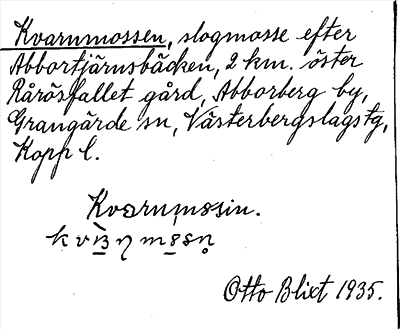 Kvarnmossen, slogmosse efter
Abbortjärnsbäcken, 2 km. öster
Råråsfallet gård, Abborberg by,
Grangärde sn, Västerbergslags tg,
Kopp l.
Kvarnmossin.
Otto Blixt 1935.